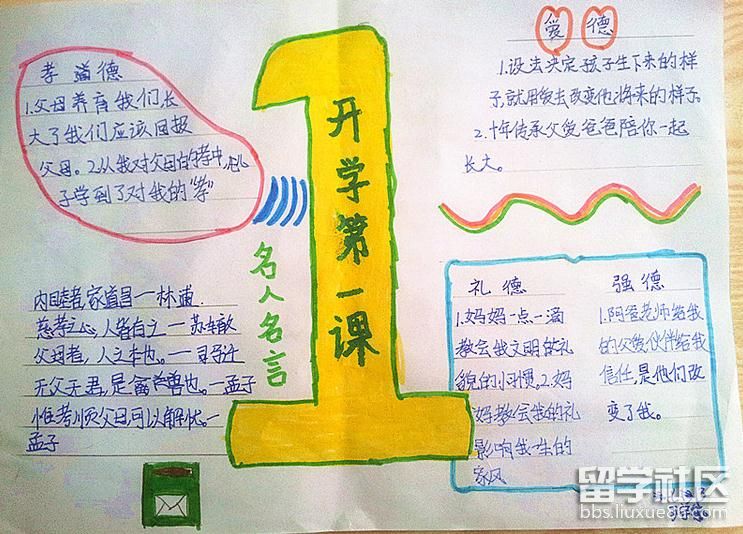 孝道德
1.父母养育我们长
大了我们应该回报
父母。2.从我对父母的孝中,
子学到了对我的"孝"
开学第一课
爱德
1.没法决定孩子生下来的样
子,就用爱去改变他将来的样子。
2.十年传承父爱,爸爸陪你一起
长大。
名人名言
内睦者,家道昌一林逋
慈孝之心,人皆有之一苏辙
父母者,人之本也。一司马迁
无父无君,是禽兽也。一孟子
惟孝顺父母,可以解忧。一
孟子
礼德
1.妈妈一点一滴
教会我文明的礼
貌的小习惯,2.妈
妈教会我的礼
影响我一生的
家风
强德
1.阿爸老师给我
的父爱,伙伴给我
信任,是他们改
变了我。
留学社区
bbs.liuxue86.com